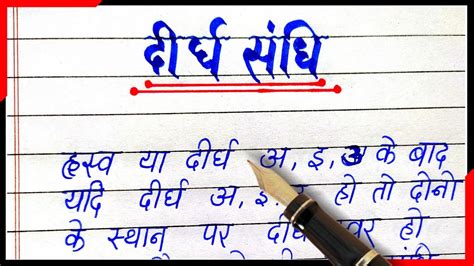 दीर्घ संधि
ह्रस्व या दीर्घ अ, इ, उ के बाद
यदि दीर्घ अ, इ, हो तो दोनो
के स्थान पर हो